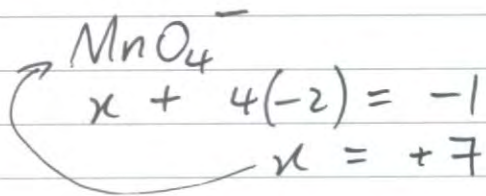 MnO₄⁻
x + 4(-2) = -1
x = +7